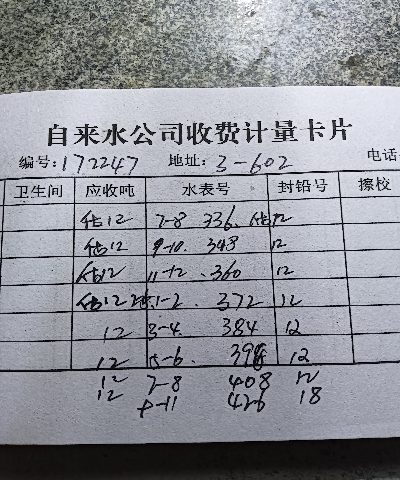 自来水公司收费计量卡片
编号:172247 地址:3-602 电话
卫生间 应收吨 水表号 封铅号 擦校
估12 7-8 336. 估12
估12 9-10. 348 12
估12 11-12 .360 12
估12 1-2. 372 12
12 3-4. 384 12
12 5-6. 396 12
12 7-8 408 12
12 -11 426 18